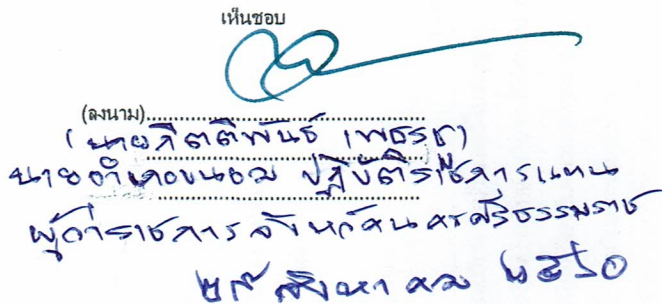 เห็นชอบ
(ลงนาม)
(นายกิตติพันธ์ เพชรชู)
นายอำเภอขนอม ปฏิบัติราชการแทน
ผู้ว่าราชการจังหวัดนครศรีธรรมราช
สิงหาคม ๒๕๖๐